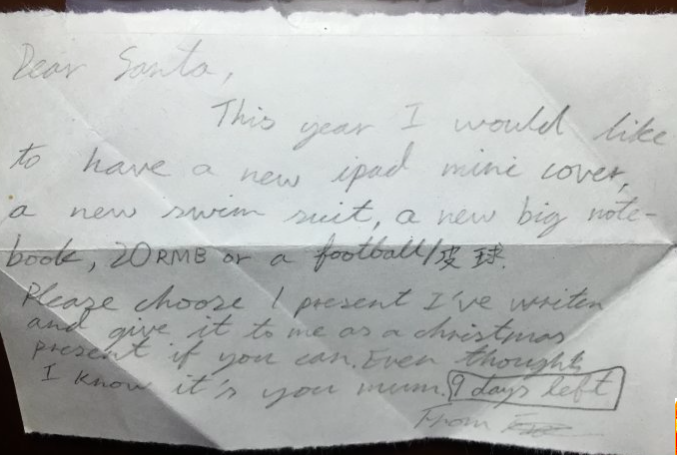 Dear Santa,
This year I would like
to have a new ipad mini cover,
a new swim suit, a new big note-
book, 20RMB or a football/皮球.
Please choose 1 present I've writen
and give it to me as a christmas
present if you can. Even though
I know it's you mum. 9 days left
From